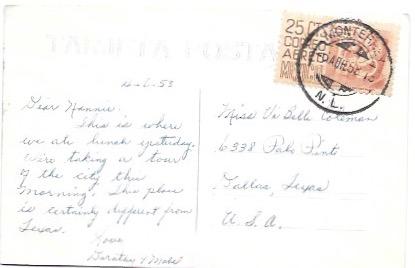 TARJETA POSTAL
25 CTS
CORREO
AEREO
MONTERREY
N. L.
4-6-53
Dear Nannie:
This is where
we ate lunch yesterday.
We're taking a tour
of the city this
morning. This place
is certainly different from
Texas.
Love
Dorothy & Mabel
Miss Vi Belle Coleman
6338 Palo Pinto
Dallas, Texas
U.S.A.